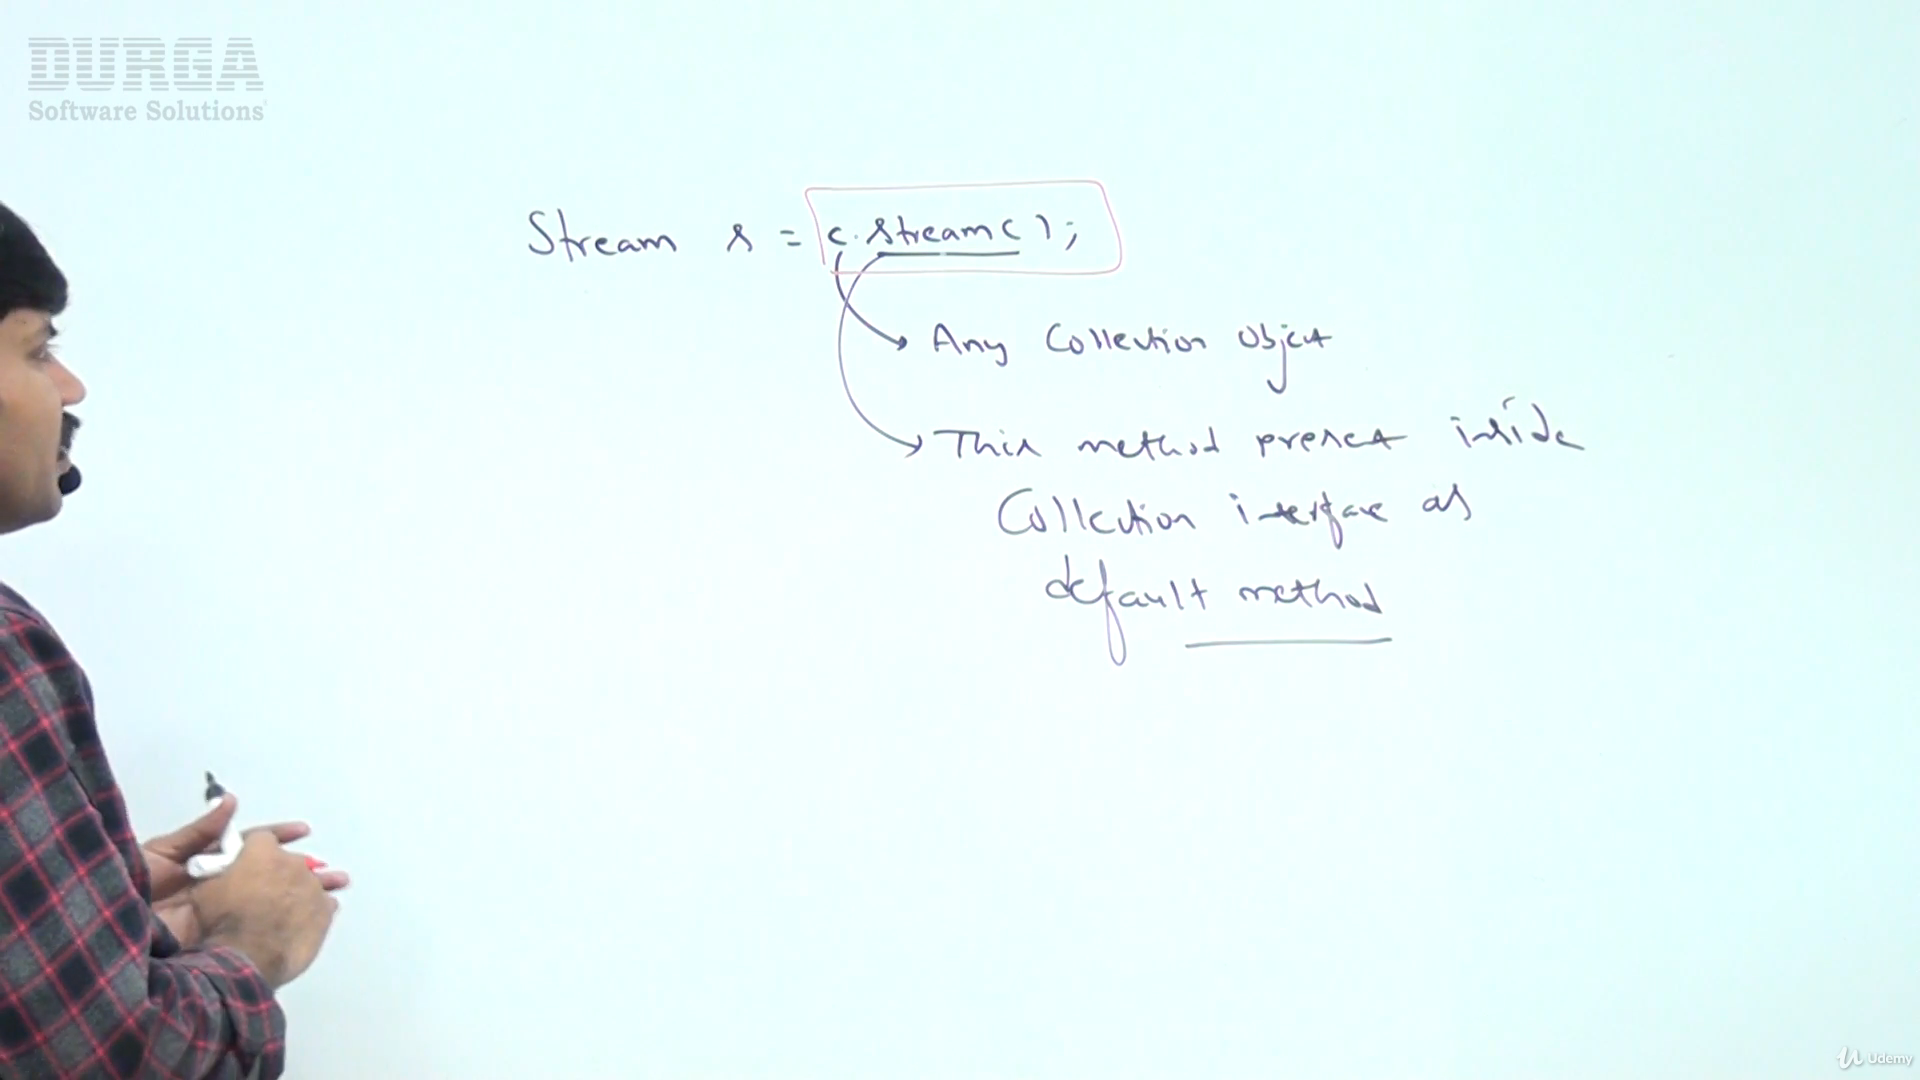 DURGA
Software Solutions
Stream s = c.stream();
Any Collection Object
This method present inside
Collection interface as
default method
Udemy